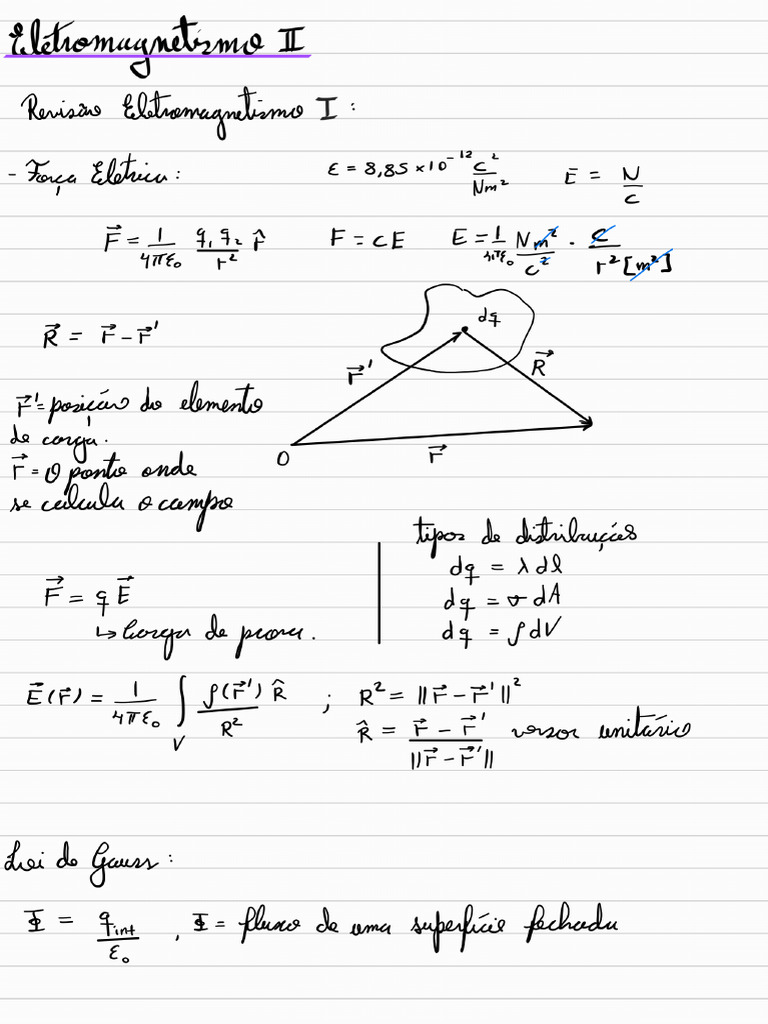 Eletromagnetismo II
Revisão Eletromagnetismo I :
- Força Eletrica : ε = 8,85 × 10⁻¹² C²/Nm² E = N/C
F⃗ = 1/4πε₀ q₁ q₂/r² r̂ F = CE E = 1/4πε₀ Nm²/C² · C/r²[m²]
dq
R⃗ = r⃗ - r⃗'
r⃗' R⃗
r⃗' = posição do elemento
de carga.
0 r⃗
r⃗ = O ponto onde
se calcula o campo
tipos de distribuições
dq = λ dl
F⃗ = q E⃗
dq = σ dA
↳ Carga de prova.
dq = ρ dV
E⃗(r⃗) = 1/4πε₀ ∫_V ρ(r⃗') R̂/R² ; R² = ||r⃗ - r⃗'||²
R̂ = r⃗ - r⃗'/||r⃗ - r⃗'|| versor unitário
Lei de Gauss :
Φ = q_int/ε₀ , Φ = fluxo de uma superfície fechada